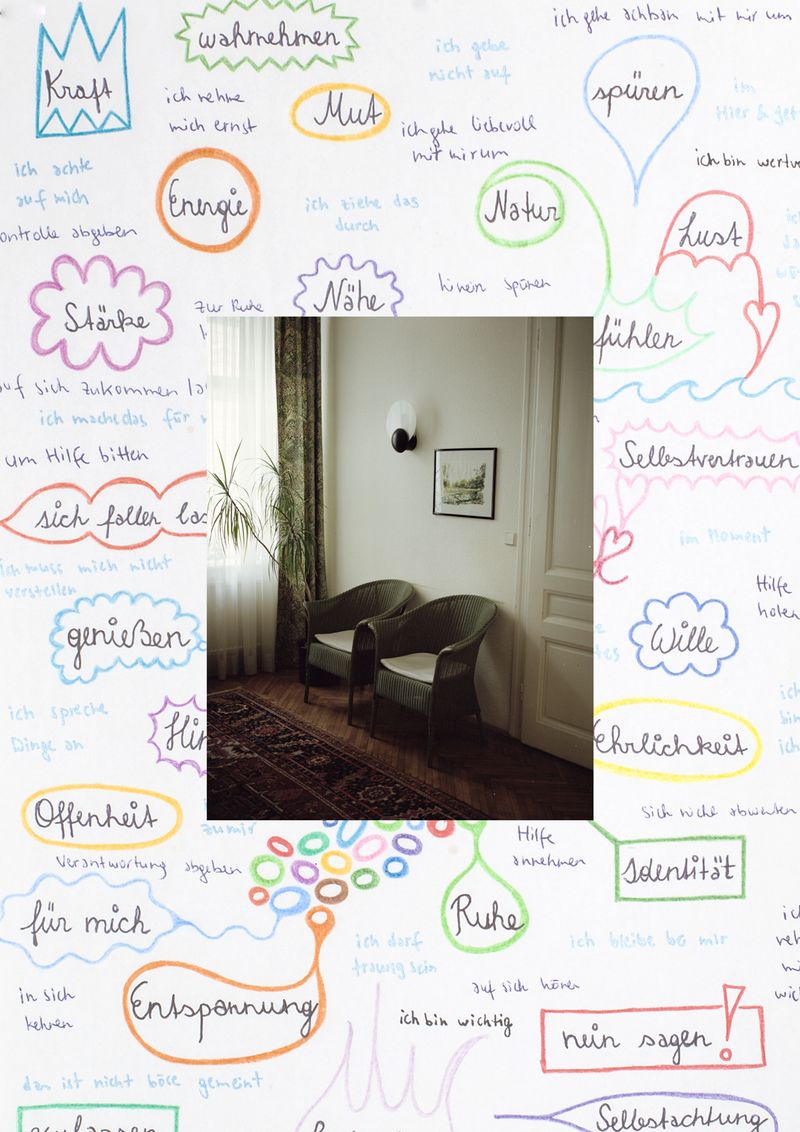 ich gehe achtsam mit mir um
wahrnehmen
Kraft
ich gebe
nicht auf
spüren
im
ich nehme
mich ernst
Mut
Hier &
ich gehe liebevoll
mit mir um
ich achte
auf mich
ich bin
Energie
ich ziehe das
durch
Natur
Lust
abgeben
Stärke
zur Ruhe
Nähe
hinein spüren
fühlen
auf sich zukommen
ich mache das für
um Hilfe bitten
Selbstvertrauen
sich fallen
im Moment
ich muss mich nicht
verstellen
Hilfe
holen
genießen
Wille
ich spreche
Dinge an
Ehrlichkeit
Offenheit
zu mir
Hilfe
annehmen
Verantwortung abgeben
Identität
für mich
Ruhe
ich darf
traurig sein
ich bleibe bei mir
in sich
kehren
Entspannung
auf sich hören
ich bin wichtig
nein sagen!
das ist nicht böse gemeint
Selbstachtung